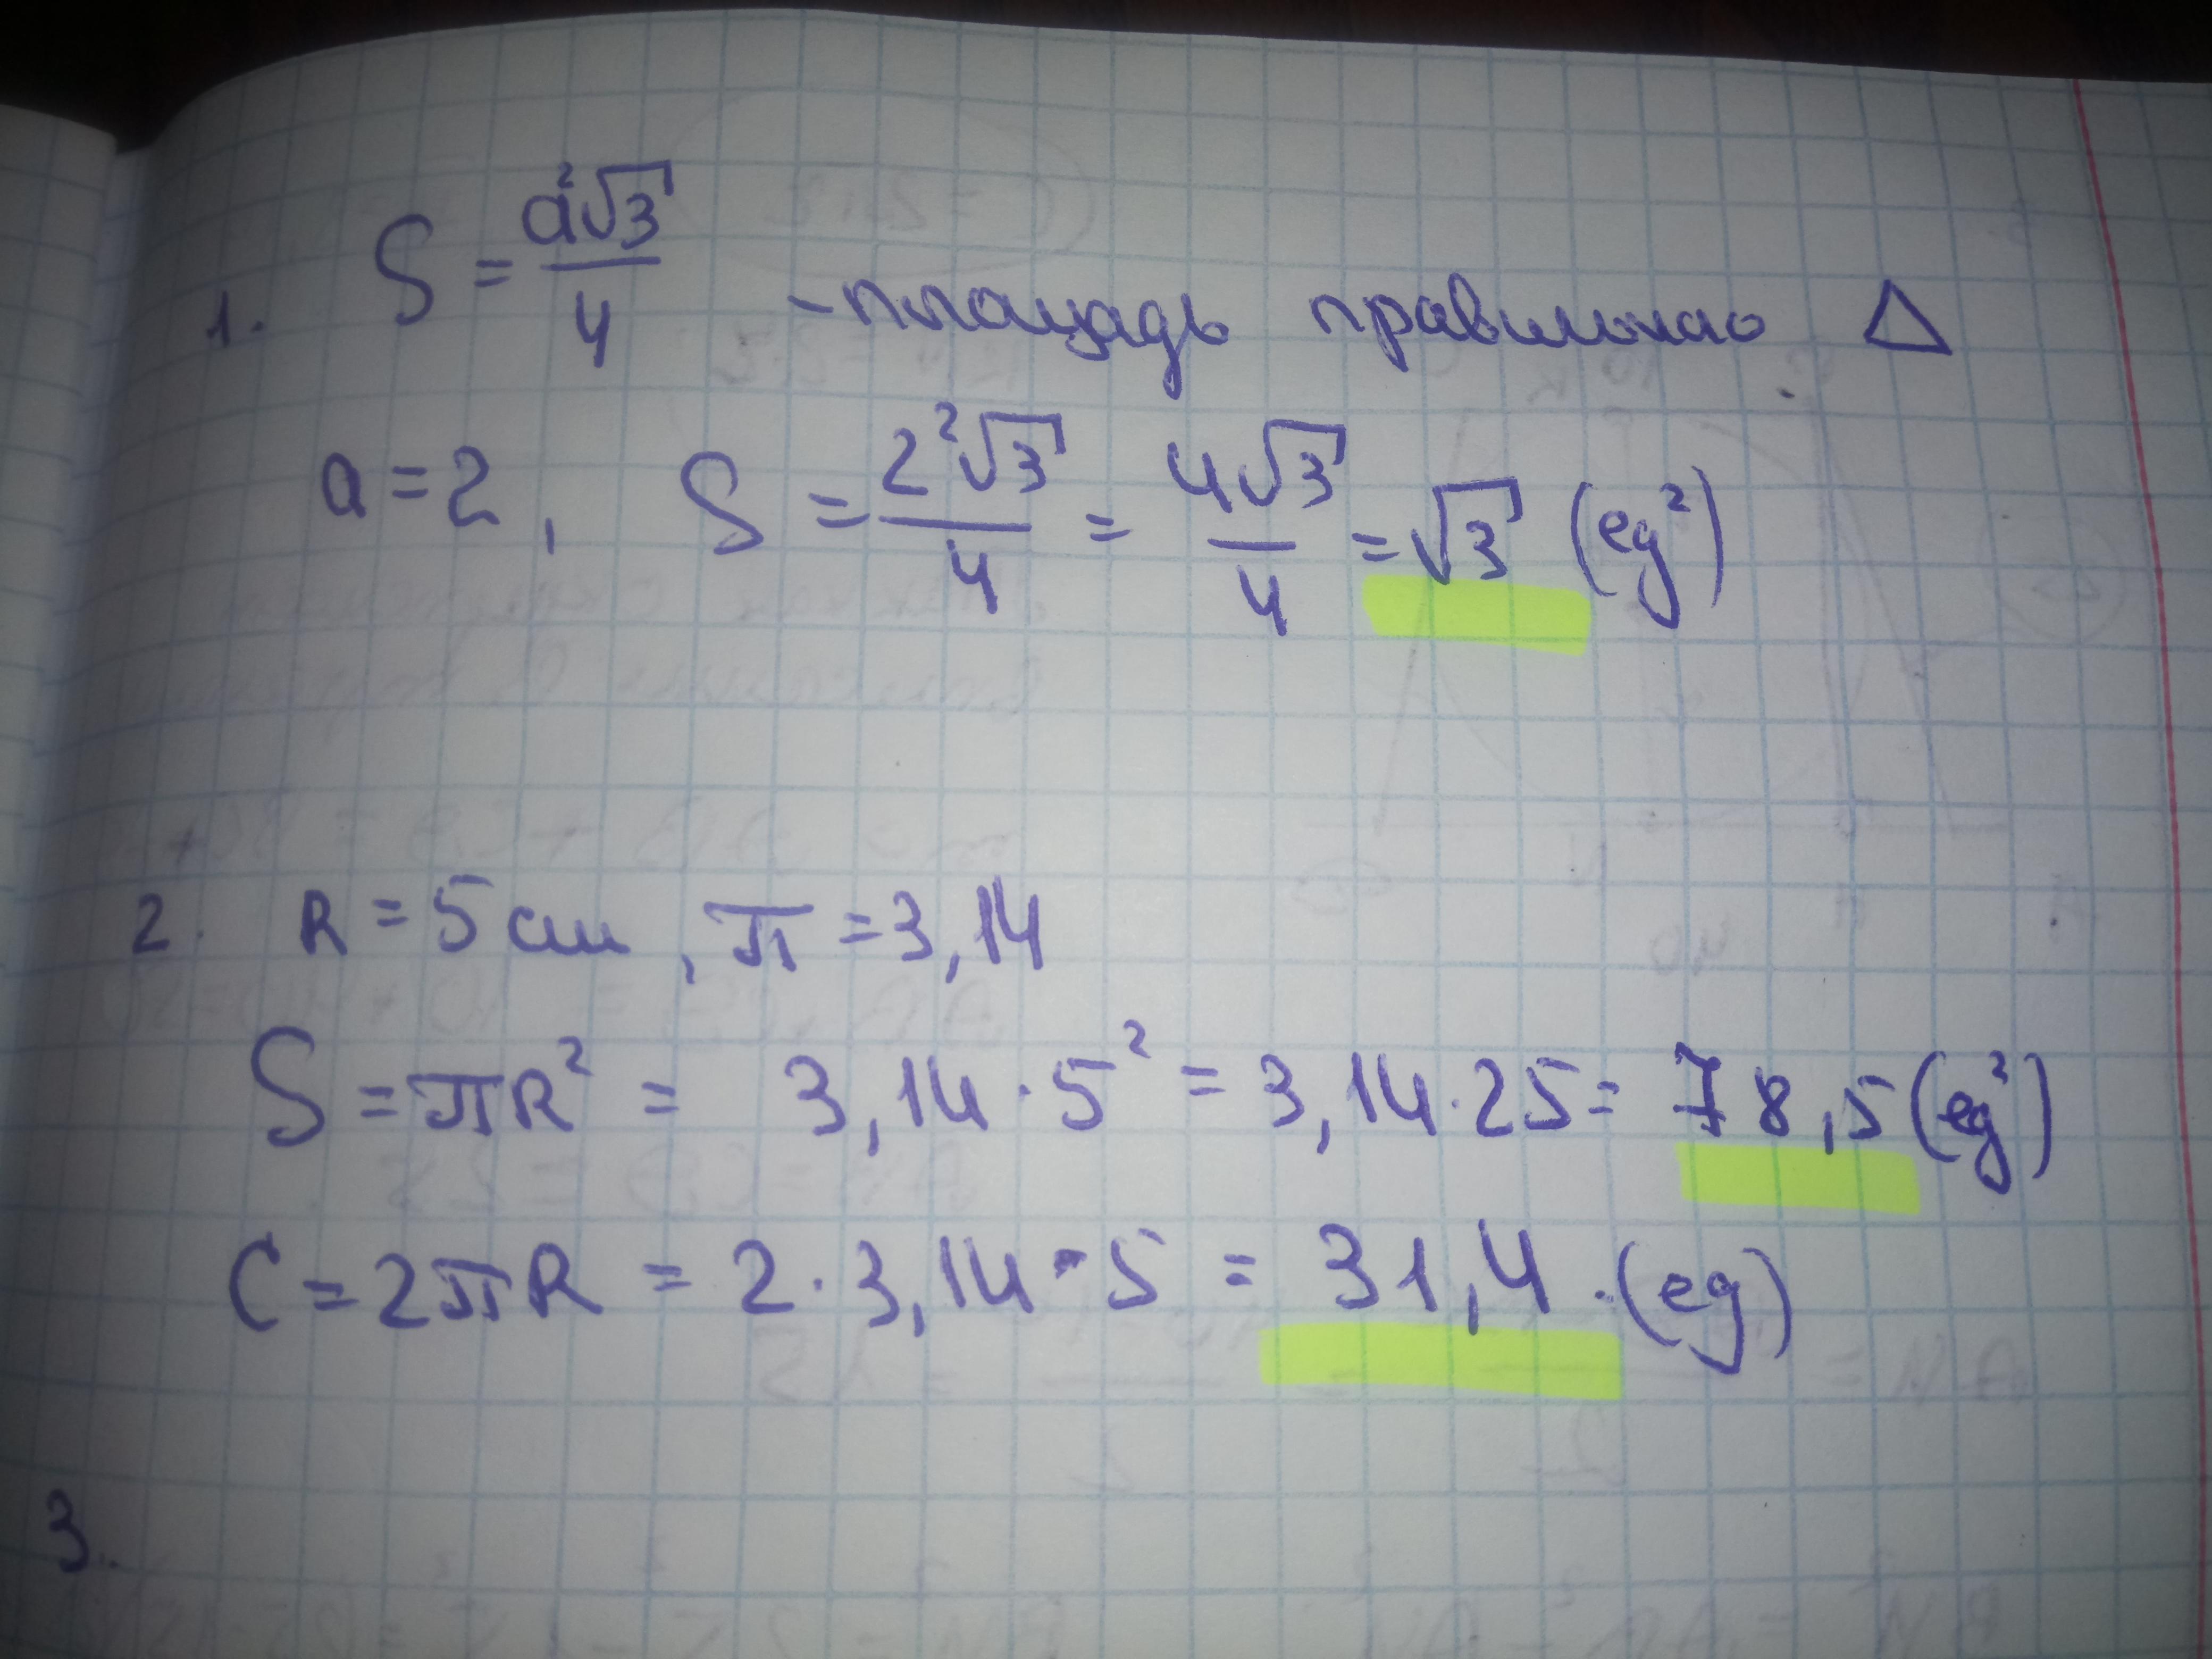 1. S = a²√3/4 - площадь правильнао △
a = 2, S = 2²√3/4 = 4√3/4 = √3 (ед²)
2. R = 5 см, π = 3,14
S = πR² = 3,14 · 5² = 3,14 · 25 = 78,5 (ед²)
C = 2πR = 2 · 3,14 · 5 = 31,4 · (ед)
3.